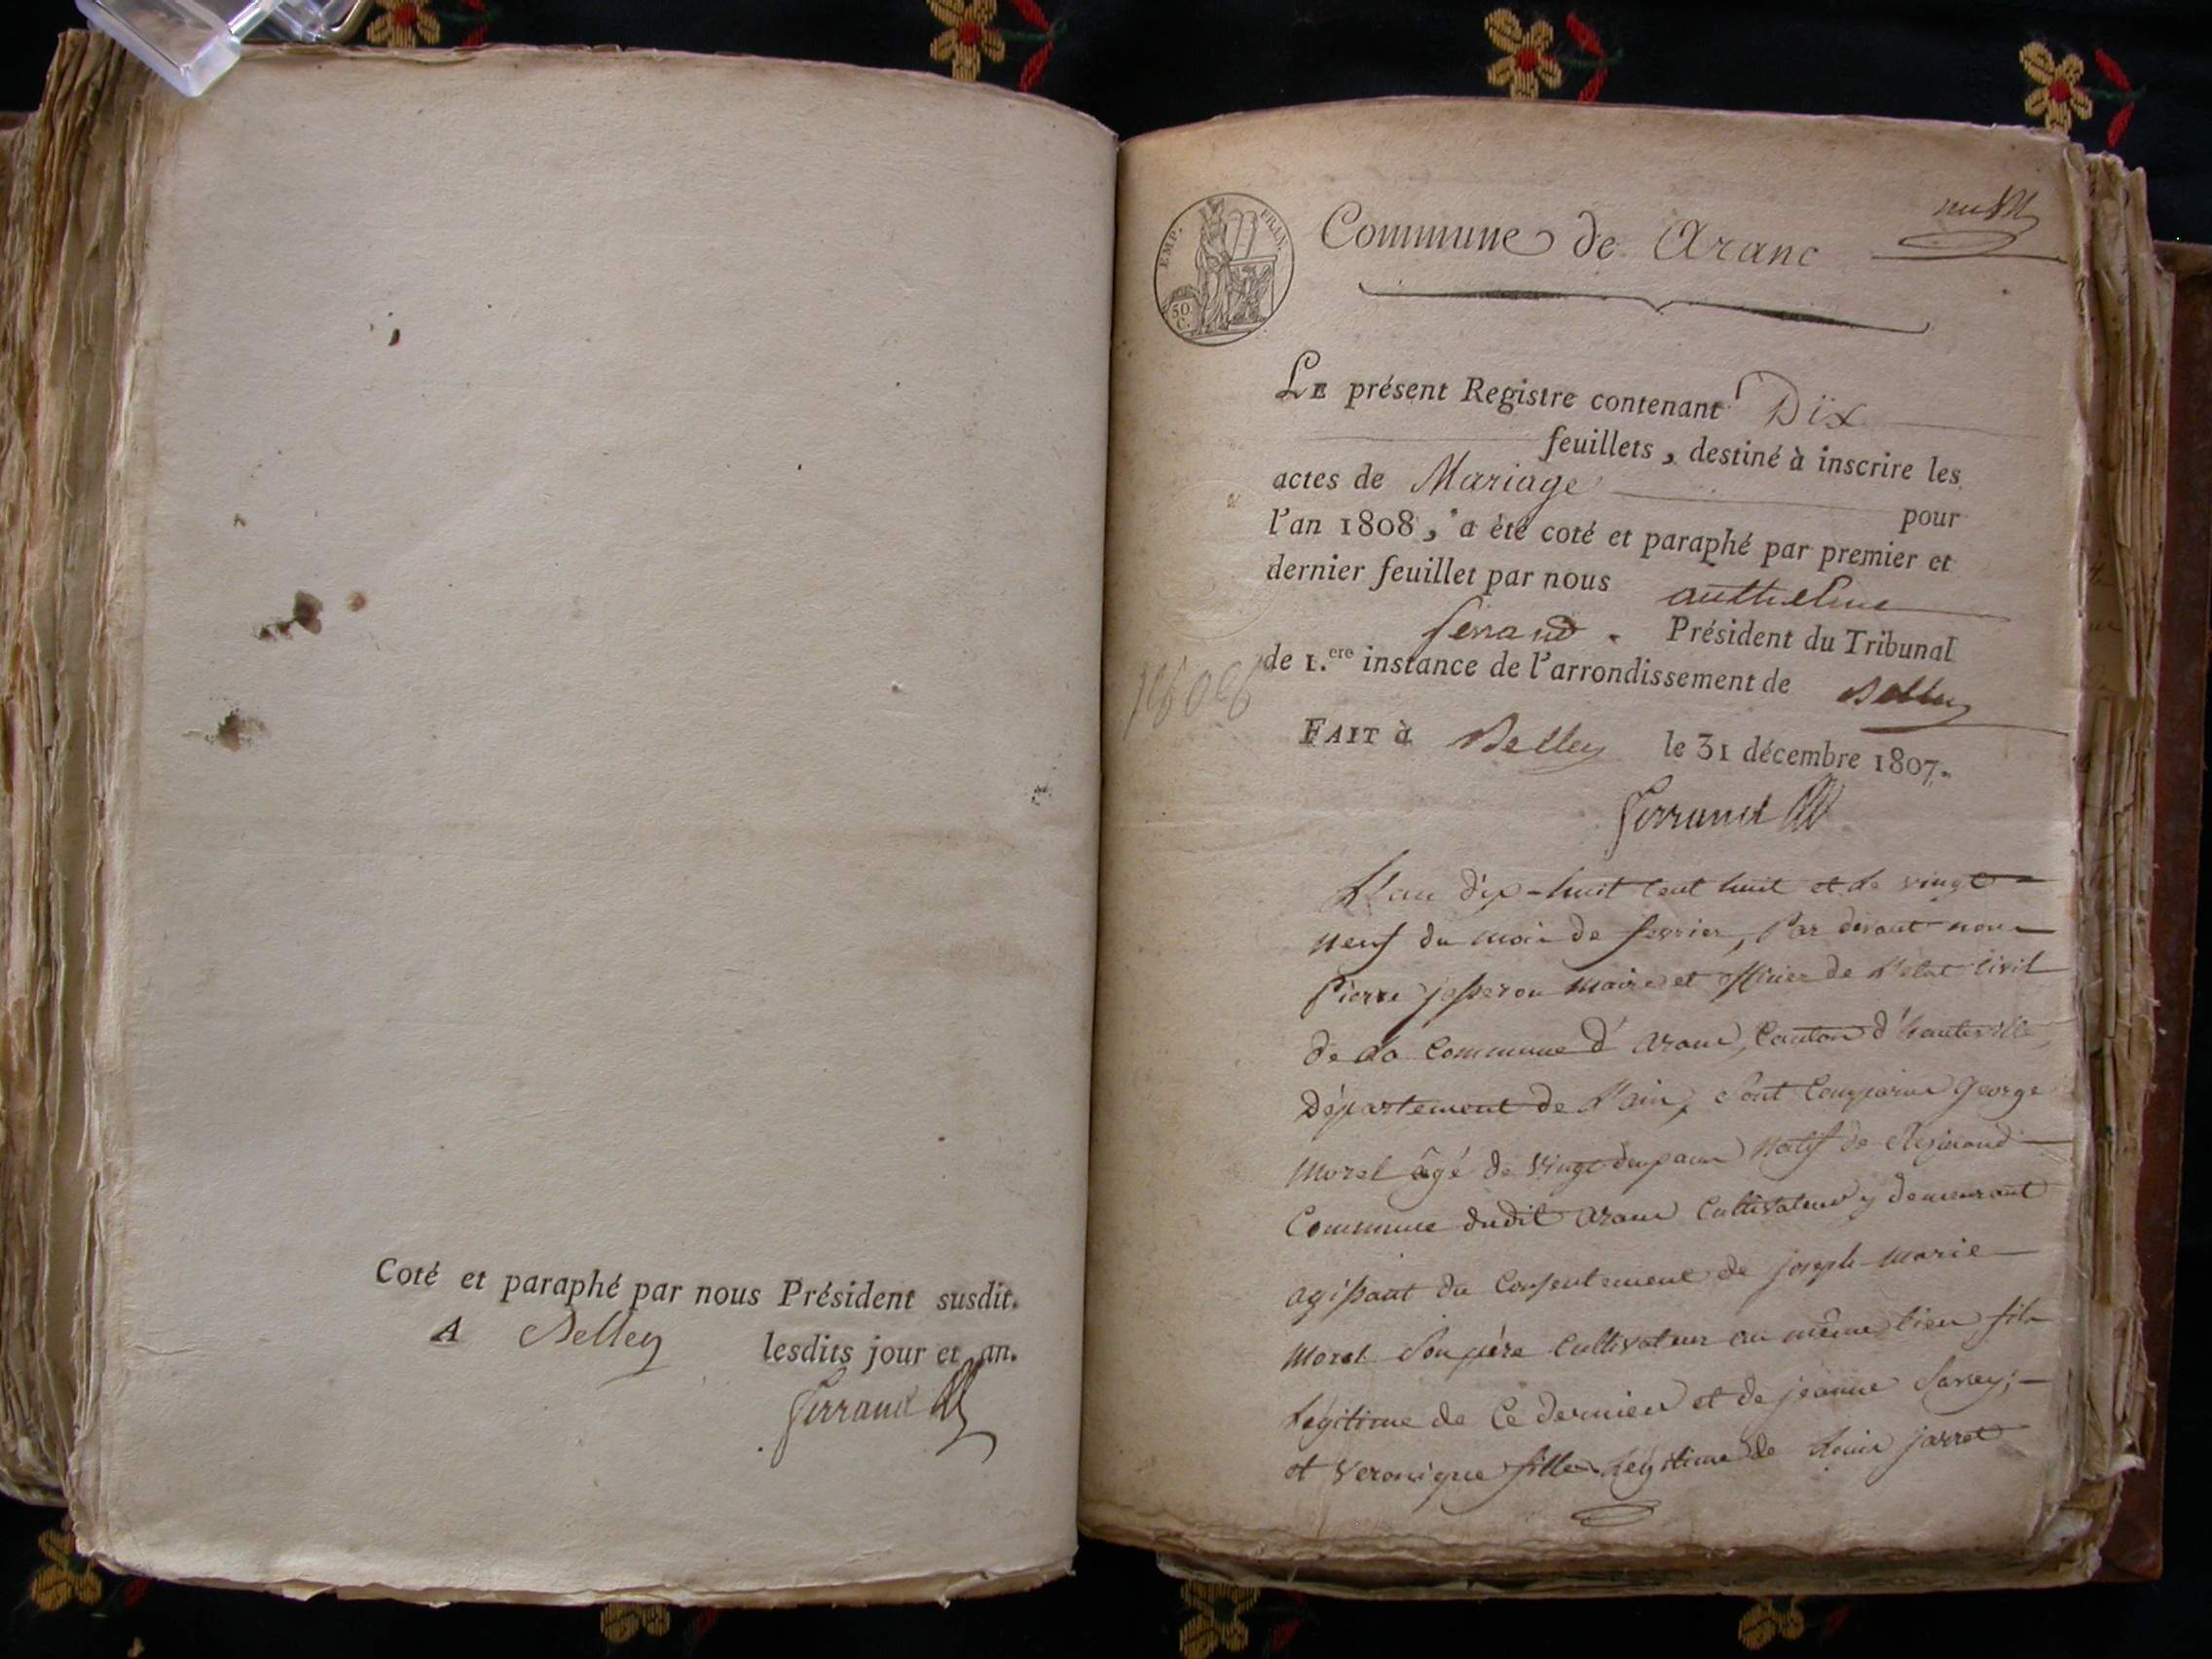 Coté et paraphé par nous Président susdit.
A Belley lesdits jour et an.
Ferrand
EMP. FRAN.
50
C.
Commune de Aranc
LE présent Registre contenant Dix
feuillets, destiné à inscrire les
actes de Mariage pour
l'an 1808, a été coté et paraphé par premier et
dernier feuillet par nous anthelme
ferrand. Président du Tribunal
de 1.ere instance de l'arrondissement de Belley
FAIT à Belley le 31 décembre 1807.
Ferrand
L'an dix-huit cent huit et le vingt
neuf du mois de fevrier, Par devant nous
Pierre josseron maire et officier de l'etat civil
de la Commune d'aranc, Canton d'hauteville,
Département de l'ain, sont Comparus George
Morel âgé de vingt deux ans natif de Resinand
Commune dudit aranc Cultivateur y demeurant
agissant du Consentement de joseph-marie
Morel Son père Cultivateur au même lieu fils
Legitime de Ce dernier et de jeanne Savey;
et Veronique fille Legitime de Louis jarret